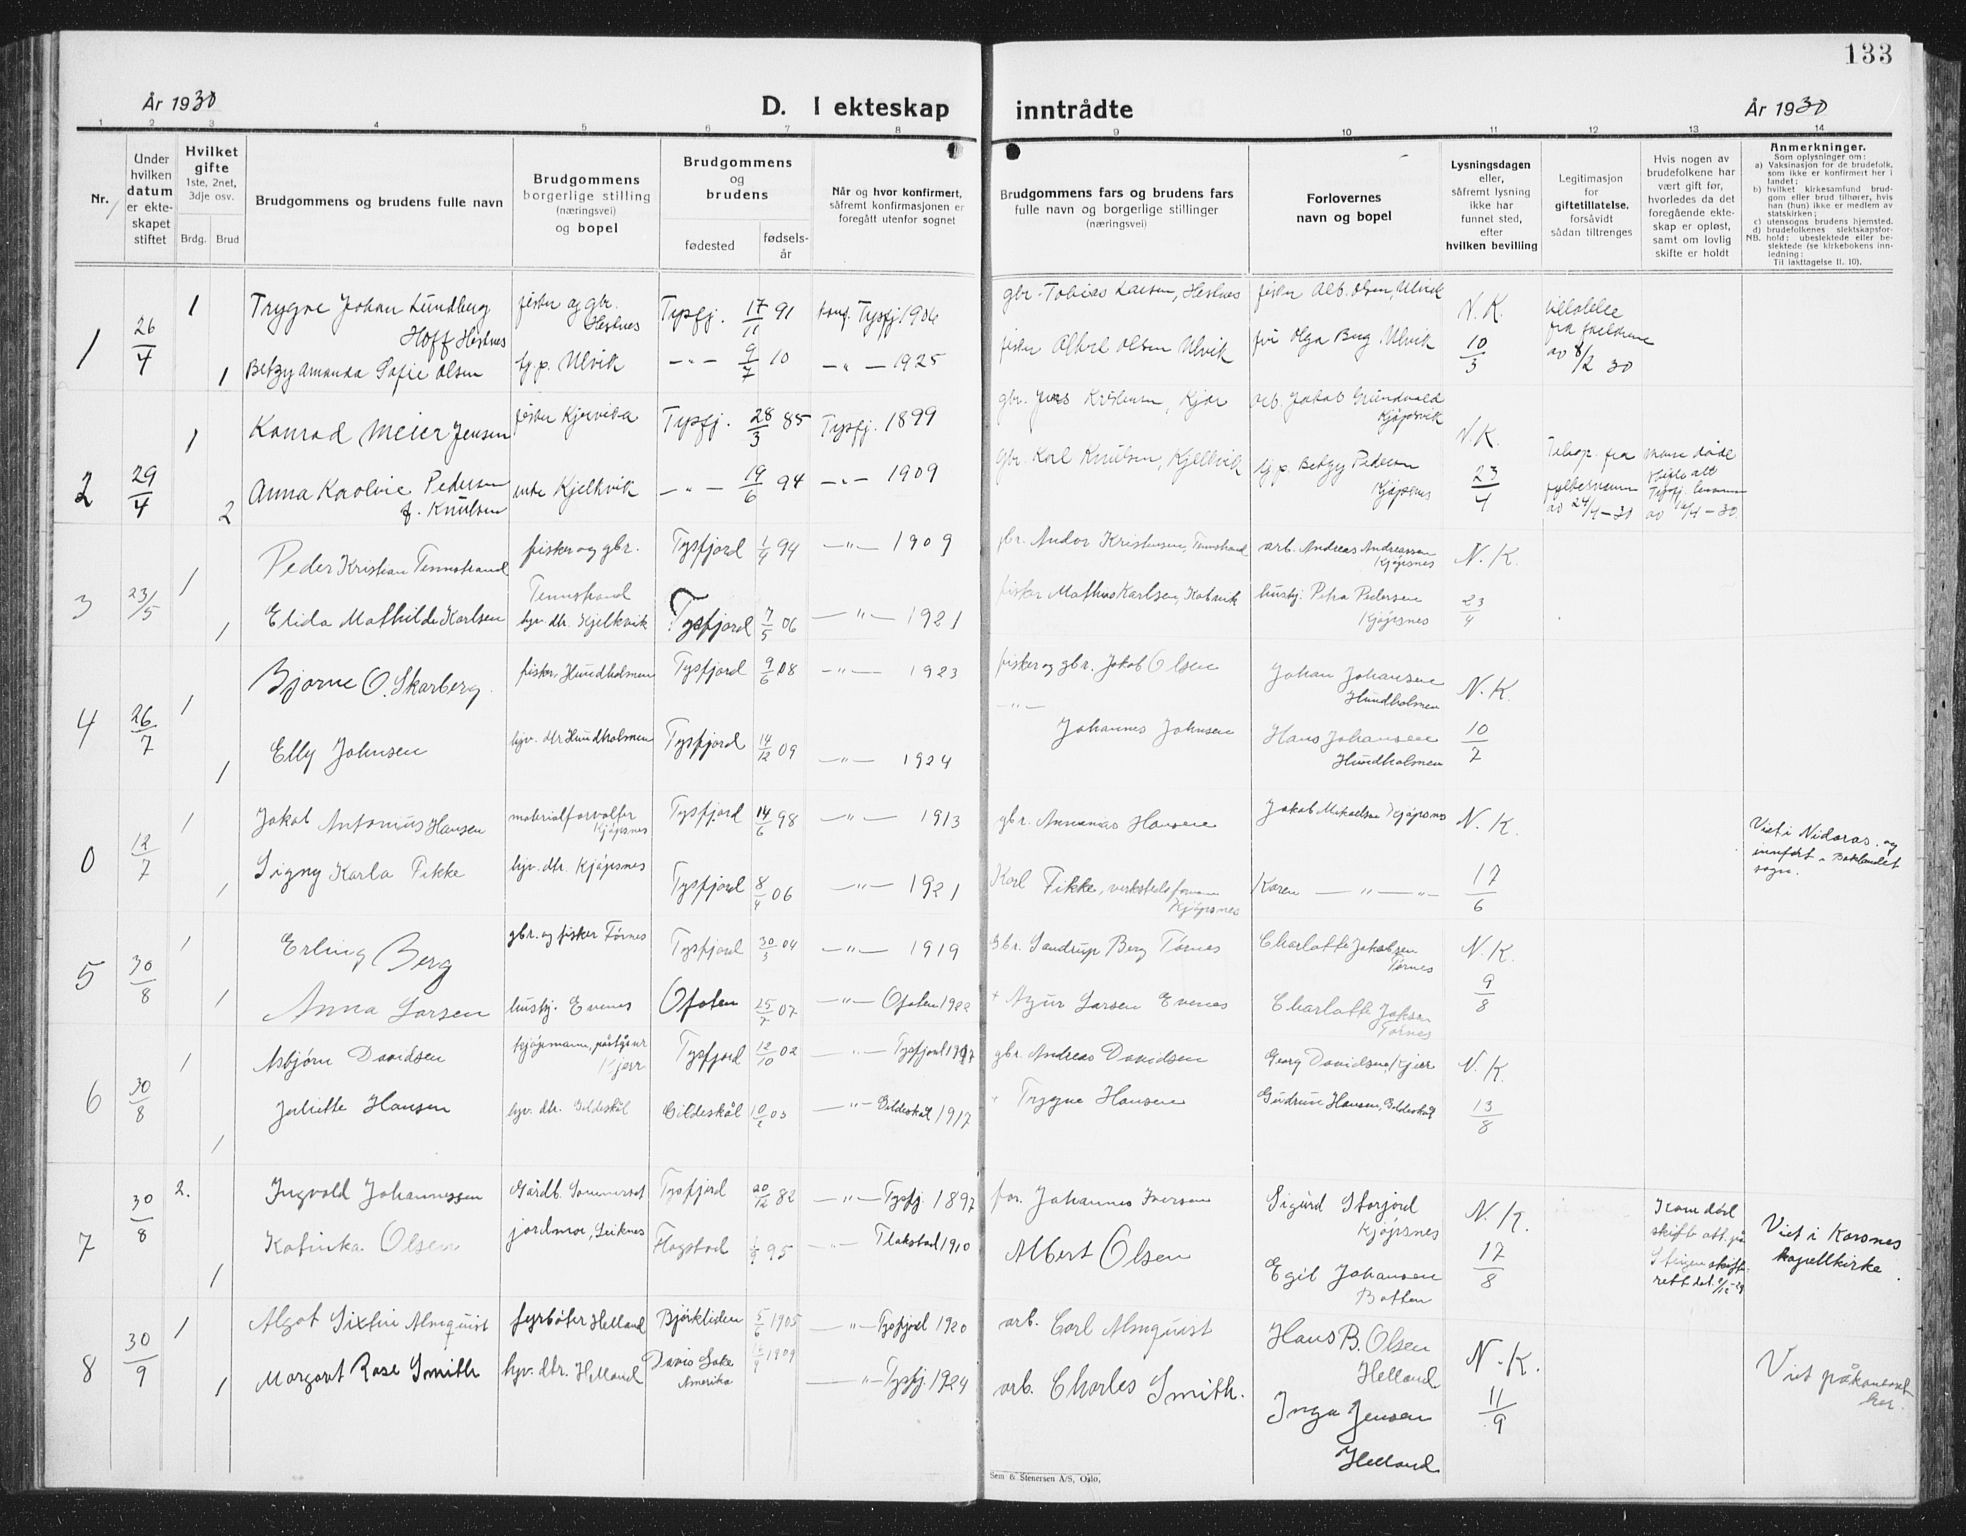 133
År 1930
D. I ekteskap inntrådte
År 1930
1 2 3 4 5 6 7 8 9 10 11 12 13 14
Nr.
Under hvilken datum er ekteskapet stiftet
Hvilket gifte
1ste, 2net, 3dje osv.
Brdg. Brud
Brudgommens og brudens fulle navn
Brudgommens borgerlige stilling (næringsvei) og bopel
Brudgommens og brudens
fødested
fødselsår
Når og hvor konfirmert, såfremt konfirmasjonen er foregått utenfor sognet
Brudgommens fars og brudens fars fulle navn og borgerlige stillinger (næringsvei)
Forlovernes navn og bopel
Lysningsdagen eller, såfremt lysning ikke har funnet sted, efter hvilken bevilling
Legitimasjon for giftetillatelse, forsåvidt sådan tiltrenges
Hvis nogen av brudefolkene har vært gift før, hvorledes da det foregående ekteskap er opløst, samt om lovlig skifte er holdt
Anmerkninger.
Som oplysninger om:
a) Vaksinasjon for de brudefolk, som ikke er konfirmert her i landet;
b) hvilket kirkesamfund brudgom eller brud tilhører, hvis han (hun) ikke er medlem av statskirken;
c) utensogns brudens hjemsted.
d) brudefolkenes slektskapsforhold: ubeslektede eller beslektede (se kirkebokens innledning:
NB.
Til iakttagelse II. 10).
1 26/4 1 Trygve Johan Lundberg Hoff Hestnes fisker og gbr. Hestnes Tysfj. 17/11 91 konf. Tysfj 1906 gbr. Tobias Larsen, Hestnes fisker Alb. Olsen, Ulvik N. K. 10/3 tillatelse fra av 8/2 30
1 Betzy Amanda Sofie Olsen tj.p. Ulvik -"- 9/7 10 -"- 1925 fisker Albert Olsen Ulvik frú Olga Berg Ulvik
2 29/4 1 Konrad Meier Jensen fisker Kjervika Tysfj. 28/3 85 Tysfj. 1899 gbr. Jens Kristensen, Kjær arb. Jakob Grundvold Kjøpsvik N. K. 23/4
2 Anna Karolvie Pedersen f. Knutsen enke Kjelkvik -"- 19/6 94 -"- 1909 gbr. Karl Knutsen, Kjelkvik tj.p. Betzy Pedersen Kjøpsnes fra fylkesmann av 24/4-30 mann døde skifte att Tysfj. av /4-30
3 23/5 1 Peder Kristian Tennstrand fisker og gbr. Tennstrand Tysfjord 1/4 94 -"- 1909 gbr. Andor Kristensen, Tennstrand arb. Andreas Andreassen Kjøpsnes N. K. 23/4
1 Elida Mathilde Karlsen hjv. dtr. Kjelkvik Tysfjord 7/5 06 -"- 1921 fisker Mathias Karlsen, Kobvik hustj. Petra Pedersen Kjøpsnes
4 26/7 1 Bjarne O. Skarberg fisker, Hundholmen Tysfjord 9/6 08 -"- 1923 fisker og gbr. Jakob Olsen Johan Johansen Hundholmen N. K. 10/7
1 Elly Johnsen hjv. dtr Hundholmen Tysfjord 14/12 09 -"- 1924 -"- Johannes Johnsen Hans Johansen Hundholmen
0 12/7 1 Jakob Antonius Hansen materialforvalter Kjøpsnes Tysfjord 14/6 98 -"- 1913 gbr. Annanias Hansen Jakob Mikaelsen Kjøpsnes N. K. 17/6 Viet i Nidaros og innført i Baklandet sogn.
1 Signy Karla Fikke hjv. dtr. Kjøpsnes Tysfjord 8/4 06 -"- 1921 Karl Fikke, verkstedsformann Kjøpsnes Karen -"- -"-
5 30/8 1 Erling Berg gbr. og fisker Tørnes Tysfjord 30/3 04 -"- 1919 Gbr. Sandrup Berg Tørnes Charlotte Jakobsen Tørnes N. K. 9/8
1 Anna Larsen hustj. Evenes Ofoten 25/7 07 -"- Ofoten 1922 + Agur Larsen Evenes Charlotte Jakobsen Tørnes
6 30/8 1 Asbjørn Davidsen kjøpmann, Kjær Tysfjord 12/10 02 -"- Tysfjord 1917 gbr. Andreas Davidsen Georg Davidsen, Kjær N. K. 13/8
1 Juliette Hansen hjv. dtr. Gildeskål Gildeskål 03 -"- Gildeskål 1917 + Trygve Hansen Gudrun Hansen, Gildeskål
7 30/8 2. Ingvald Johannessen Gårdb. Sommerset Tysfjord 20/12 82 -"- Tysfj. 1897 for. Johannes Iversen Sigurd Storjord Kjøpsnes N. K. 17/8 Kone død skifte att. på Steigen skifterett Viet i Korsnes kapellkirke.
1 Katinka Olsen jordmor, Leiknes Flagstad 95 -"- Flakstad 1910 Albert Olsen Egil Johansen Botten
8 30/9 1 Algot Sixten Almquist fyrbøter Helland Bjørkliden 5/6 1905 -"- Tysfjord 1920 arb. Carl Almquist Hans B. Olsen Helland N. K. 11/9 Viet på kontoret her.
1 Margaret Rose Smith hjv. dtr. Helland Davis Lake Amerika 1909 -"- Tysfj 1924 arb. Charles Smith. Inga Jensen Helland
Sem & Stenersen A/S, Oslo.